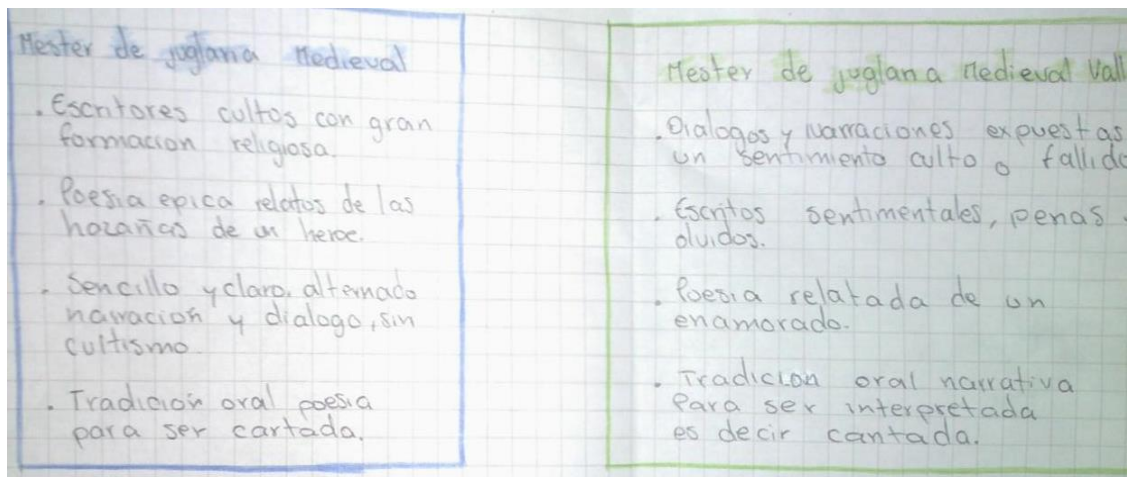 Mester de juglaria Medieval
. Escritores cultos con gran
formaccion religiosa.
. Poesia epica relatos de las
hazañas de un heroe.
. Sencillo y claro, alternado
narracion y dialogo, sin
cultismo.
. Tradicion oral poesia
para ser cartada.
Mester de juglaria Medieval Vall
. Dialogos y narraciones expuestas
un sentimiento culto o fallido
. Escritos sentimentales, penas
olvidos.
. Poesia relatada de un
enamorado.
. Tradicion oral narrativa
Para ser interpretada
es decir cantada.